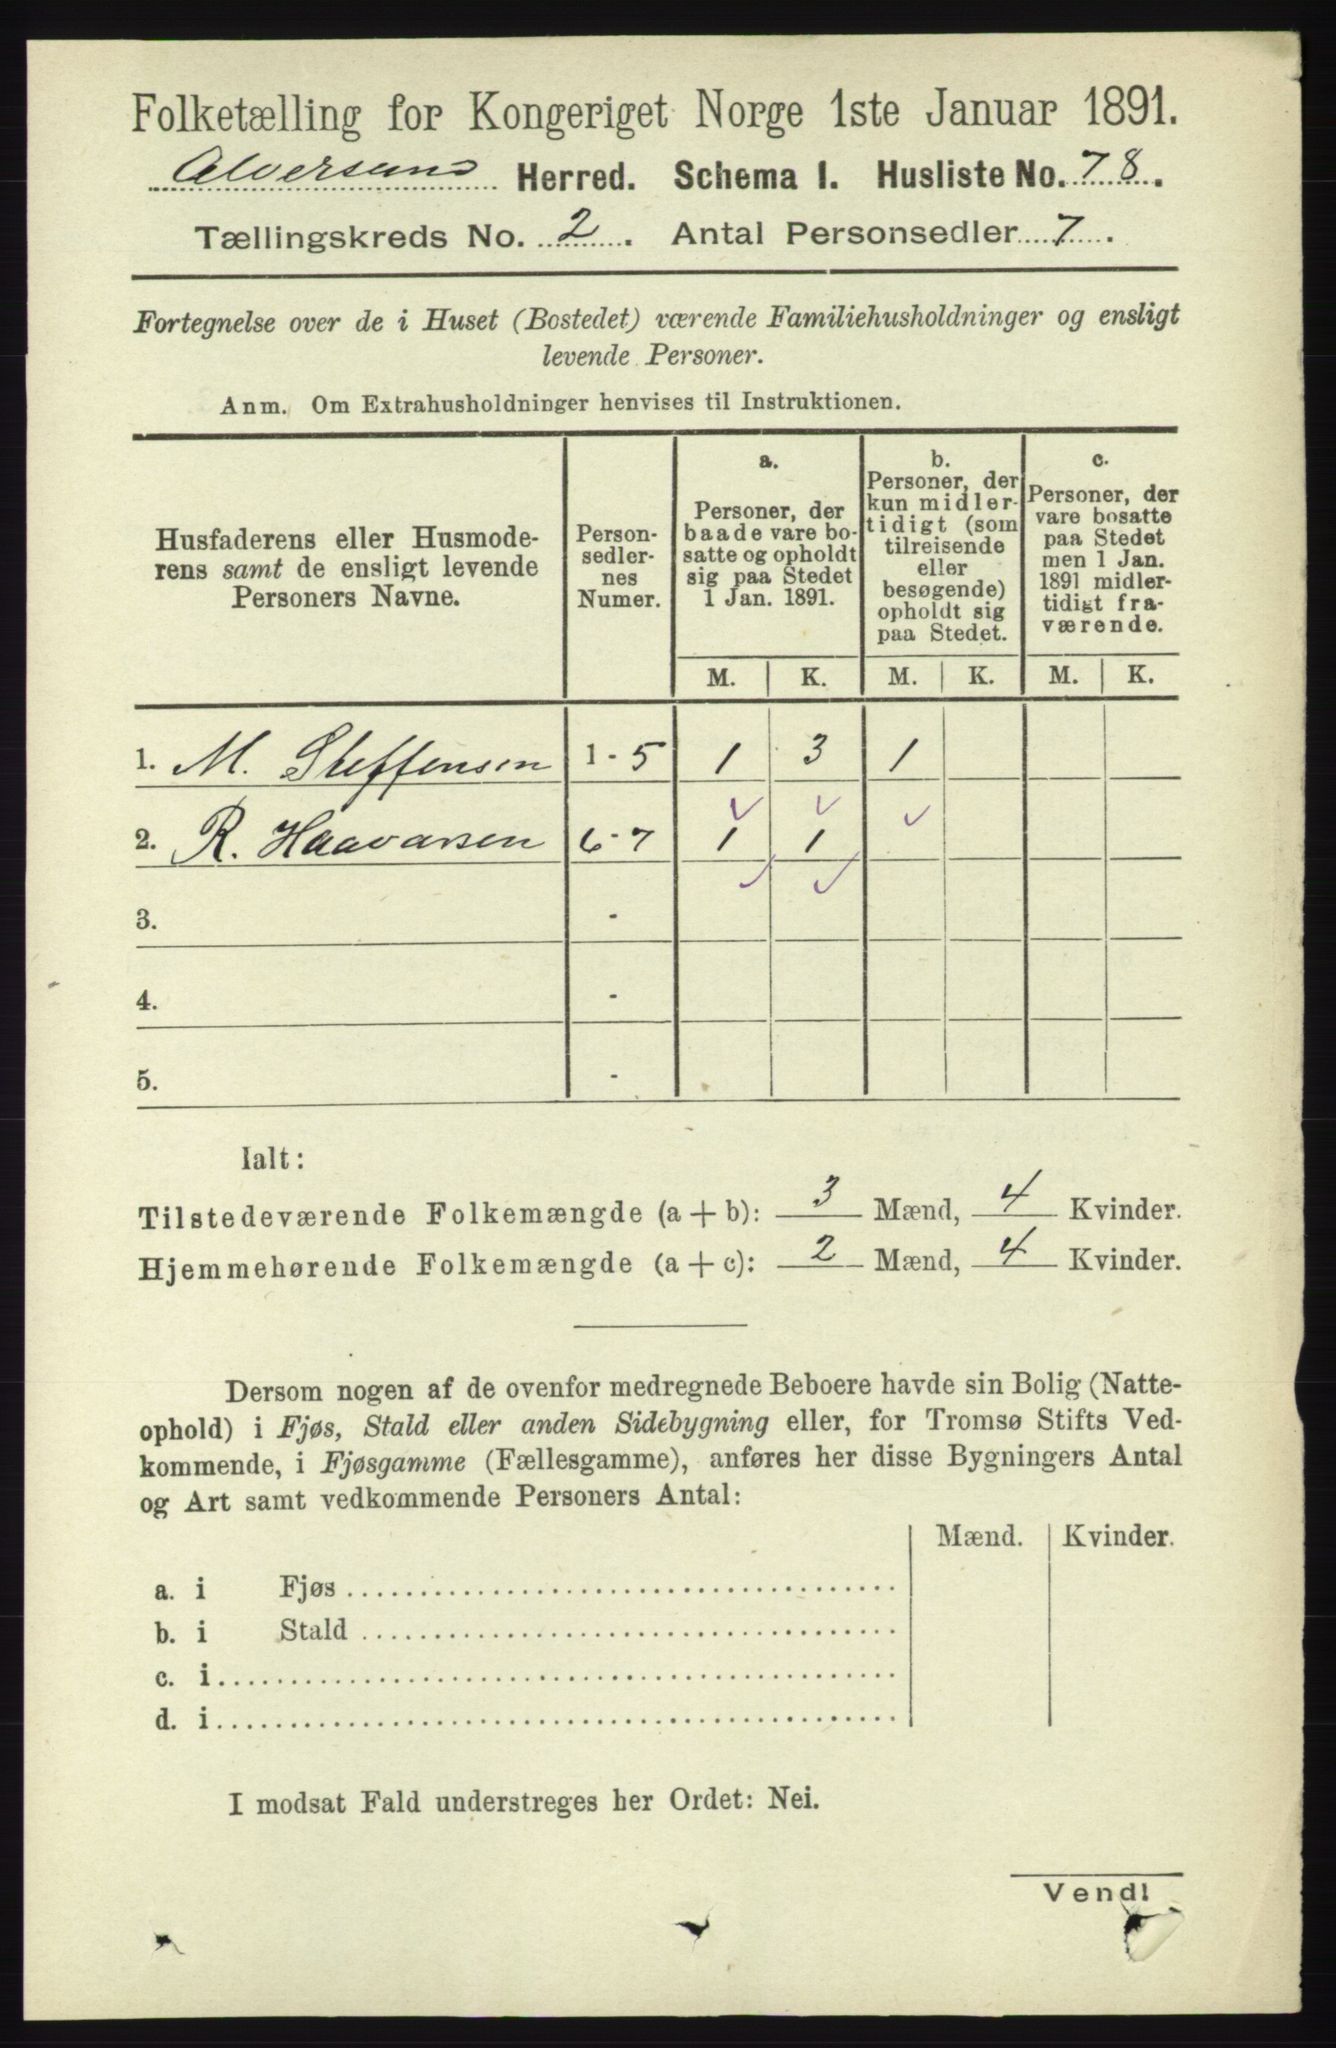 Folketælling for Kongeriget Norge 1ste Januar 1891.
Alversund Herred. Schema I. Husliste No. 78.
Tællingskreds No. 2. Antal Personsedler 7.
Fortegnelse over de i Huset (Bostedet) værende Familiehusholdninger og ensligt
levende Personer.
Anm. Om Extrahusholdninger henvises til Instruktionen.
Husfaderens eller Husmode-
rens samt de ensligt levende
Personers Navne.
Person-
sedler-
nes
Numer.
a.
Personer, der
baade vare bo-
satte og opholdt
sig paa Stedet
1 Jan. 1891.
b.
Personer, der
kun midler-
tidigt (som
tilreisende
eller
besøgende)
opholdt sig
paa Stedet.
c.
Personer, der
vare bosatte
paa Stedet
men 1 Jan.
1891 midler-
tidigt fra-
værende.
M. K. M. K. M. K.
1. M. Steffensen 1-5 1 3 1
2. R. Haavarsen 6-7 1 1
3. -
4. -
5. -
Ialt:
Tilstedeværende Folkemængde (a + b): 3 Mænd, 4 Kvinder.
Hjemmehørende Folkemængde (a + c): 2 Mænd, 4 Kvinder.
Dersom nogen af de ovenfor medregnede Beboere havde sin Bolig (Natte-
ophold) i Fjøs, Stald eller anden Sidebygning eller, for Tromsø Stifts Ved-
kommende, i Fjøsgamme (Fællesgamme), anføres her disse Bygningers Antal
og Art samt vedkommende Personers Antal:
Mænd. Kvinder.
a. i Fjøs
b. i Stald
c. i
d. i
I modsat Fald understreges her Ordet: Nei.
Vend!